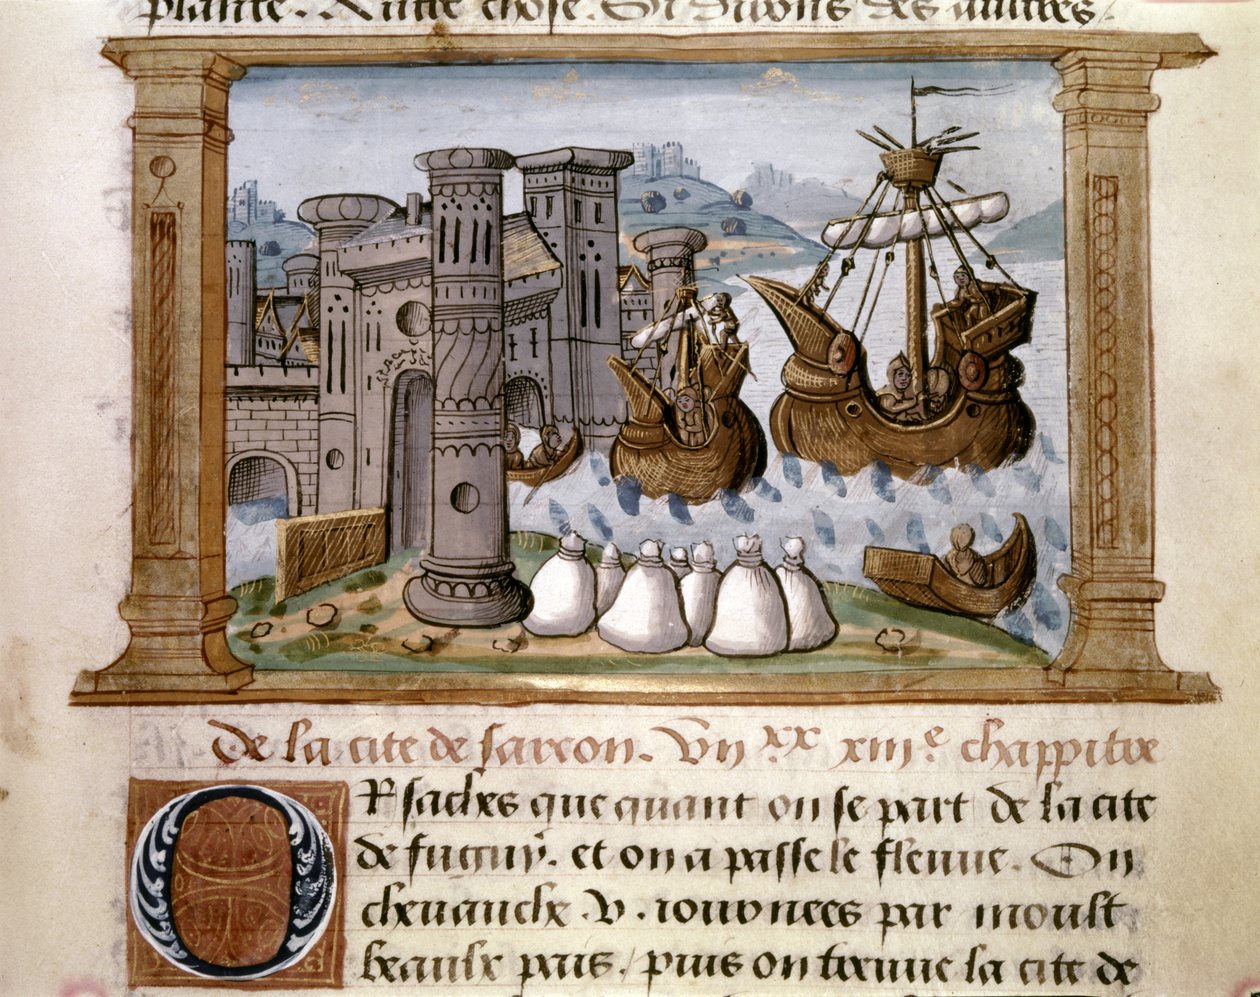 plante. Autre chose. Si dirons des autres.
De la cite de sarcon. Vii xx xiiie chappitre
OR saches que quant on se part de la cite
de fuguy. et on a passe le fleuve. On
chevauche .v. journees par moult
beaulx pais / puis on treuve la cite de